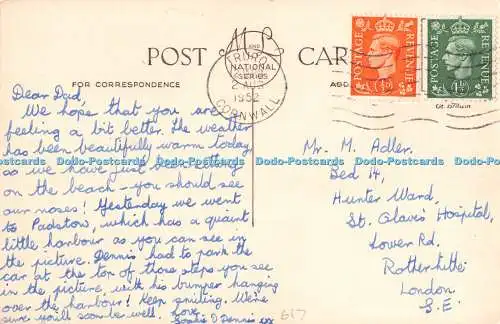 POST CARD
FOR CORRESPONDENCE
M P
TRURO
AND
NATIONAL
SERIES
2 AUG
1952
CORNWALL
POSTAGE REVENUE
POSTAGE REVENUE
Dear Dad,
We hope that you are
feeling a bit better. The weather
has been beautifully warm today,
so we have just been sitting
on the beach — you should see
our noses! Yesterday we went
to Padstow, which has a quaint
little harbour as you can see in
the picture. Dennis had to park the
car at the top of those steps you see
in the picture, with his bumper hanging
over the harbour! Keep smiling. We're
sure you'll soon be well. Love
Sophie & Dennis xx
617
Mr. M. Adler.
Bed 14,
Hunter Ward,
St. Olavis Hospital,
Lower Rd.
Rotherhithe
London
S.E.
Dodo-Postcards Dodo-Postcards Dodo-Postcards Dodo-Postcards